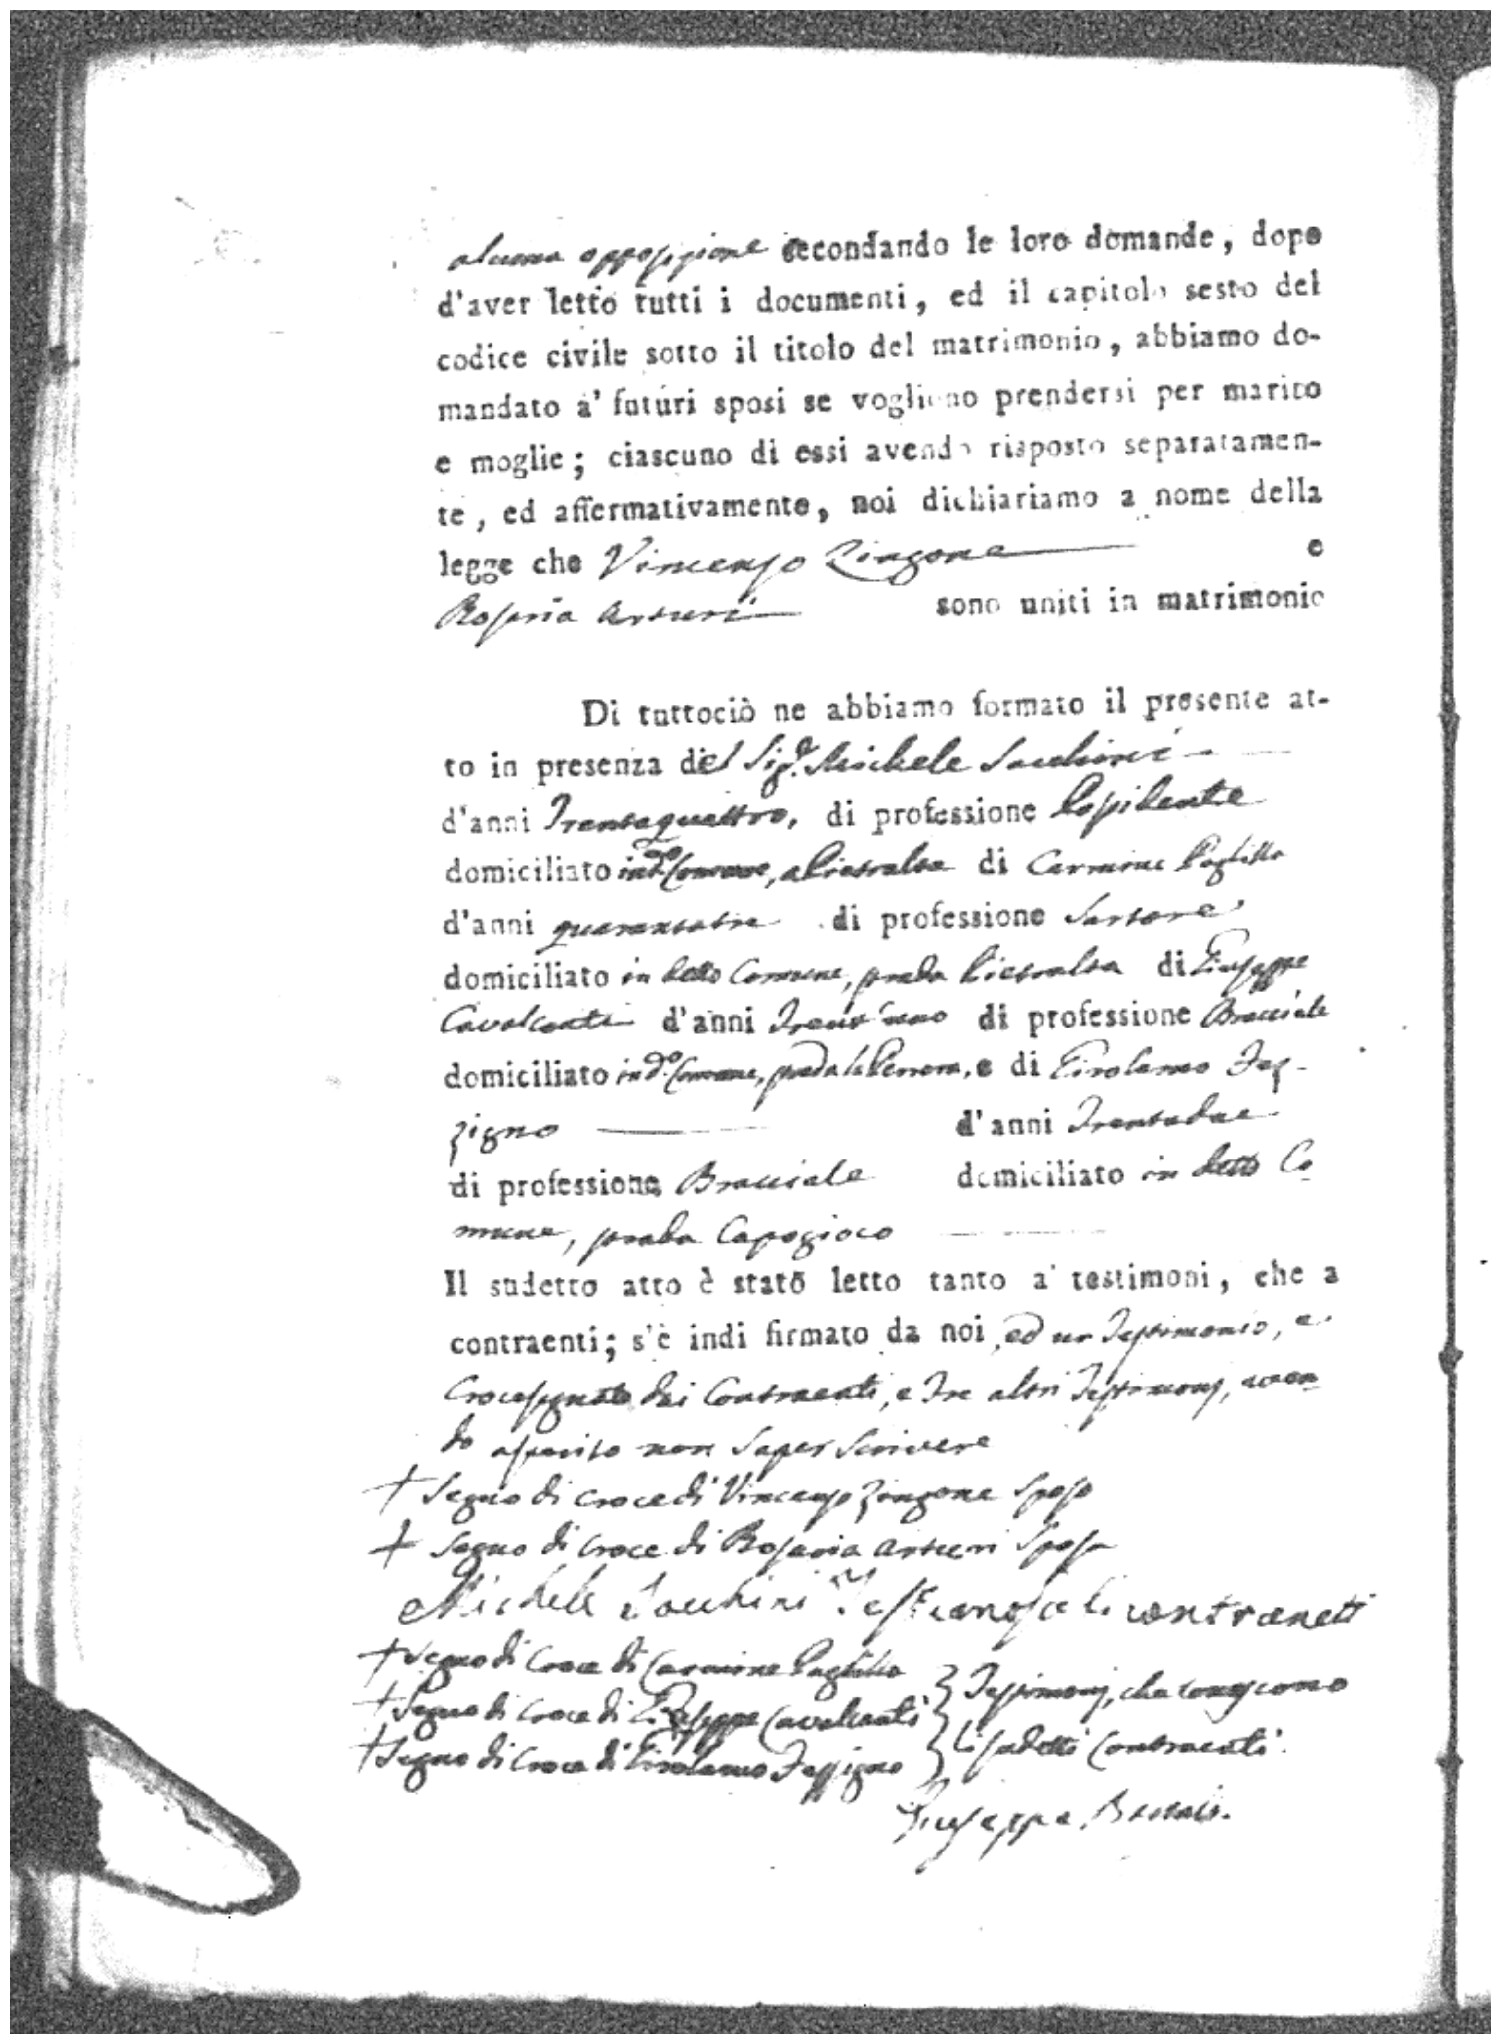 alcuna opposizione secondando le loro domande, dopo
d'aver letto tutti i documenti, ed il capitolo sesto del
codice civile sotto il titolo del matrimonio, abbiamo do-
mandato a' futuri sposi se vogliono prendersi per marito
e moglie; ciascuno di essi avendo risposto separatamen-
te, ed affermativamente, noi dichiariamo a nome della
legge che Vincenzo Zingone e
Rosaria Arturi sono uniti in matrimonio
Di tuttociò ne abbiamo formato il presente at-
to in presenza del Sig.r Michele Sacchini
d'anni Trentaquattro, di professione
domiciliato in d.o Comune, a Pietralta di Carmine Paglilla
d'anni quarantatre di professione Sartore
domiciliato in detto Comune, strada Pietralta di Giuseppe
Cavalcanti d'anni Trent'uno di professione Bracciale
domiciliato in d.o Comune, strada la e di Girolamo Tas-
signo d'anni Trentadue
di professione Bracciale domiciliato in detto Co
mune, strada Capogioco
Il sudetto atto è stato letto tanto a' testimoni, che a
contraenti; s'è indi firmato da noi, ed un Testimonio, e
Crocesegnato dai Contraenti, e Tre altri Testimonj, aven
do asserito non saper scrivere
+ Segno di croce di Vincenzo Zingone Sposo
+ Segno di croce di Rosaria Arturi Sposa
Michele Sacchini contraenti
+ Segno di Croce di Carmine Paglilla
+ Segno di Croce di Giuseppe Cavalcanti } Testimonj, che conoscono
+ Segno di Croce di Girolamo } li sudetti Contraenti.
Giuseppe